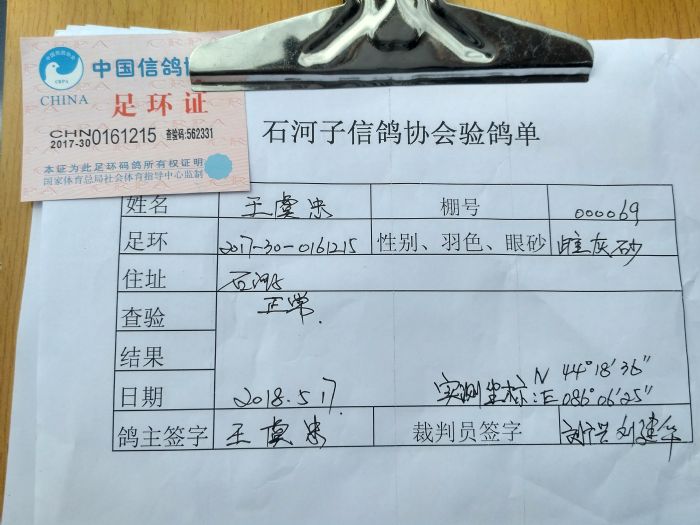 中国信鸽协
CRPA
CHINA
足环证
CHN
2017-30
0161215
查验码:562331
本证为此足环码鸽所有权证明
国家体育总局社会体育指导中心监制
石河子信鸽协会验鸽单
姓名 王虞忠 棚号 000069
足环 2017-30-0161215 性别、羽色、眼砂 雌灰砂
住址 石河子
查验 正常.
结果
日期 2018.5.17. 实测坐标: N 44°18'36"
E 086°06'25"
鸽主签字 王虞忠 裁判员签字 刘建华